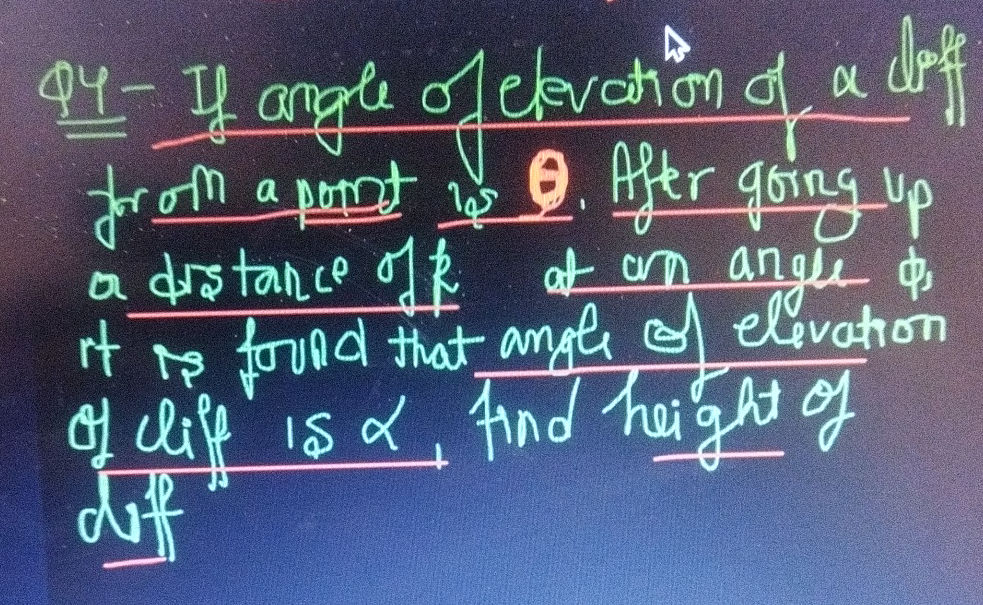 Q4- If angle of elevation of a cliff
from a point is θ. After going up
a distance of k at an angle φ,
it is found that angle of elevation
of cliff is α, find height of
cliff